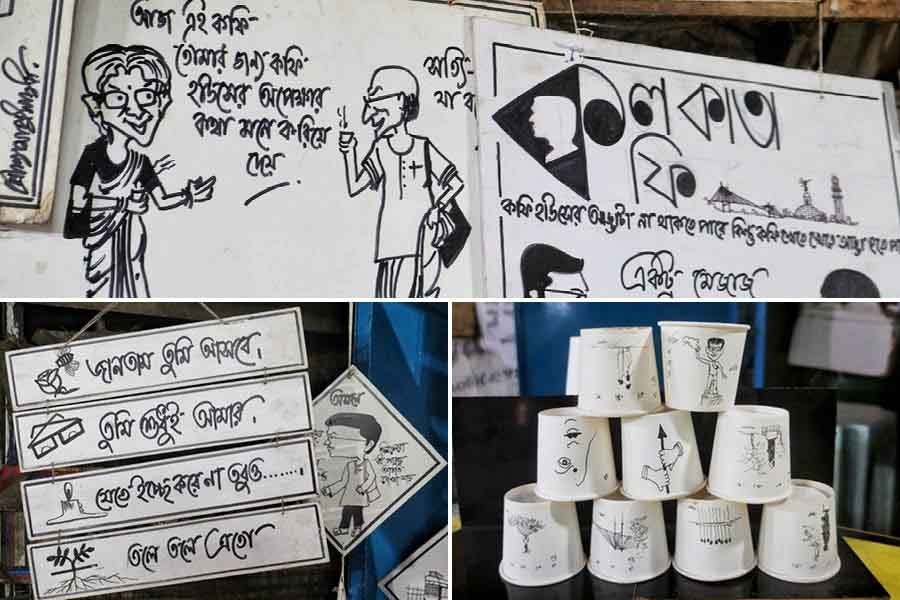 আজ এই কফি-
তোমার জন্য কফি-
হাউসের অপেক্ষার
কথা মনে করিয়ে
দেয়
সত্যি-
যা ব
কলকাতা
ফি
কফি হাউসের আড্ডাটা না থাকতে পারে কিন্তু কফি খেতে খেতে আড্ডা হতে পা
একটু মেজাজ
জানতাম তুমি আসবে।
তুমি শুধুই আমার।
যেতে ইচ্ছে করে না তবুও.......
তলে তলে এতো